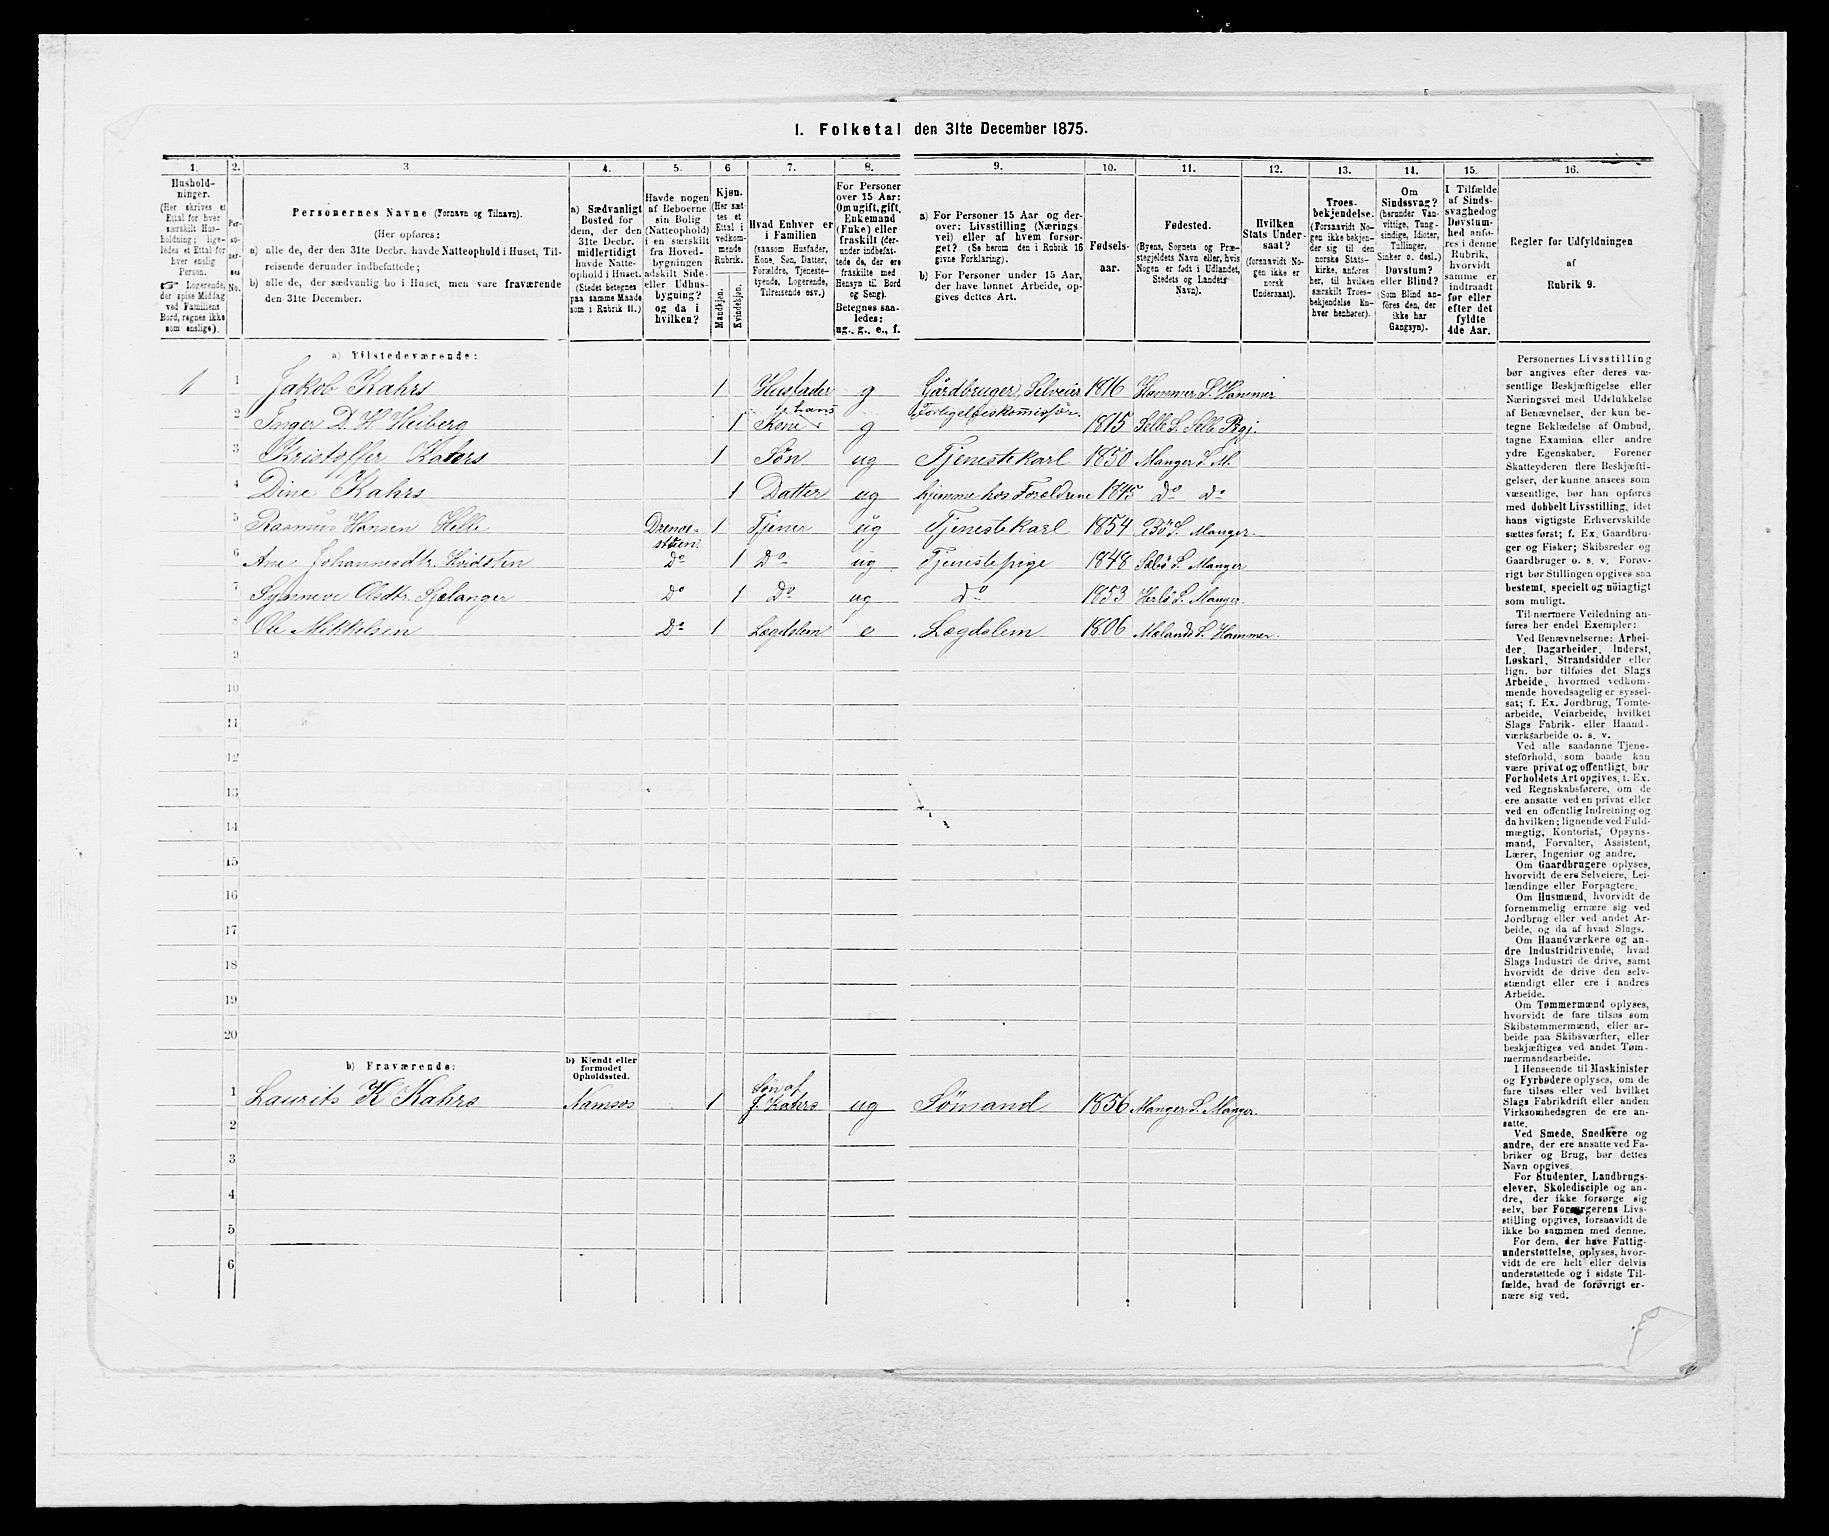 1. Folketal den 31te December 1875.
1. 2. 3 4. 5. 6 7. 8. 9. 10. 11. 12. 13. 14. 15. 16.
Hushold-
ninger.
(Her skrives et
Ettal for hver
særskilt Hus-
holdning; lige-
ledes et Ettal for
hver enslig
Person.
☞ Logerende,
der spise Middag
ved Familiens
Bord, regnes ikke
som enslige).
Per-
so-
ner-
nes
No.
Personernes Navne (Fornavn og Tilnavn).
(Her opføres:
a) alle de, der den 31te Decbr. havde Natteophold i Huset, Til-
reisende derunder indbefattede;
b) alle de, der sædvanlig bo i Huset, men vare fraværende
den 31te December.
a) Sædvanligt
Bosted for
dem, der den
31te Decbr.
midlertidigt
havde Natte-
ophold i Huset.
(Stedet betegnes
paa samme Maade
som i Rubrik 11.)
Havde nogen
af Beboerne
sin Bolig
(Natteophold)
i en særskilt
fra Hoved-
bygningen
adskilt Side-
eller Udhus-
bygning?
og da i
hvilken?
Kjøn.
(Her sæt-
tes et
Ettal i
vedkom-
mende
Rubrik.
Mandkjøn.
Kvindekjøn.
Hvad Enhver er
i Familien
(saasom Husfader,
Kone, Søn, Datter,
Forældre, Tjeneste-
tyende, Logerende,
Tilreisende osv.)
For Personer
over 15 Aar:
Om ugift, gift,
Enkemand
(Enke) eller
fraskilt (der-
under indbefat-
tede de, der ere
fraskilte med
Hensyn til Bord
og Seng).
Betegnes saa-
ledes:
ug., g., e., f.
a) For Personer 15 Aar og der-
over: Livsstilling (Nærings
vei) eller af hvem forsør-
get? (Se herom den i Rubrik 16
givne Forklaring).
b) For Personer under 15 Aar,
der have lønnet Arbeide, op-
gives dettes Art.
Fødsels-
aar.
Fødested.
(Byens, Sognets og Præ-
stegjeldets Navn eller, hvis
Nogen er født i Udlandet,
Stedets og Landets
Navn).
Hvilken
Stats Under-
saat?
(forsaavidt No-
gen ikke er
norsk
Undersaat).
Troes-
bekjendelse.
(Forsaavidt No-
gen ikke bekjen-
der sig til den
norske Stats-
kirke, anføres
her, til hvilken
særskilt Troes-
bekjendelse En-
hver henhører).
Om
Sindssvag?
(herunder Van-
vittige, Tung-
sindige, Idioter,
Tullinger,
Sinker o. desl.)
Døvstum?
eller Blind?
(Som Blind an-
føres den, der
ikke har
Gangsyn).
I Tilfælde
af Sinds-
svaghed og
Døvstum-
hed anfø-
res i denne
Rubrik,
hvorvidt
samme er
indtraadt
før eller
efter det
fyldte
4de Aar.
Regler for Udfyldningen
af
Rubrik 9.
a) Tilstedeværende:
1 1 Jakob Kahrs 1 Husfader g Gårdbruger, Selveier 1816 Hammer S. Hammer
Forligelseskomissær.
2 Inger D. H. Heiberg 1 hans Kone g 1815 Selle S. Selle Pgj.
3 Kristoffer Kahrs 1 Søn ug Tjenestekarl 1850 Manger S. M.
4 Dine Kahrs 1 Datter ug hjemme hos Forældrene 1845 do do
5 Rasmus Hansen Helle Drenge-
stuen. 1 Tjener ug Tjenestekarl 1854 Bö S. Manger.
6 Ane Johannesdtr. Hvidsten Do 1 Do ug Tjenestepige 1848 Sæbö S. Manger
7 Synneve Olsdtr. Sjelanger Do 1 Do ug Do 1853 Herlö S. Manger.
8 Ole Mikkelsen Do 1 Lægdslem e Lægdslem 1806 Mælands S. Hammer.
9
10
11
12
13
14
15
16
17
18
19
20
b) Fraværende:
b) Kjendt eller
formodet
Opholdssted.
1 Laurits K Kahrs Namsos 1 Søn af
J. Kahrs ug Sömand 1856 Manger S. Manger.
2
3
4
5
6
Personernes Livsstilling
bør angives efter deres væ-
sentlige Beskjæftigelse eller
Næringsvei med Udelukkelse
af Benævnelser, der kun be-
tegne Beklædelse af Ombud,
tagne Examina eller andre
ydre Egenskaber. Forener
Skatteyderen flere Beskjæfti-
gelser, der kunne ansees som
væsentlige, bør han opføres
med dobbelt Livsstilling, idet
hans vigtigste Erhvervskilde
sættes først; f. Ex. Gaardbru-
ger og Fisker; Skibsreder og
Gaardbruger o. s. v. Forøv-
rigt bør Stillingen opgives saa
bestemt, specielt og nöiagtigt
som muligt.
Til nærmere Veiledning an-
føres her endel Exempler:
Ved Benævnelserne: Arbei-
der, Dagarbeider, Inderst,
Løskarl, Strandsidder eller
lign. bør tilføies det Slags
Arbeide, hvormed vedkom-
mende hovedsagelig er syssel-
sat; f. Ex. Jordbrug, Tomte-
arbeide, Veiarbeide, hvilket
Slags Fabrik- eller Haand-
værksarbeide o. s. v.
Ved alle saadanne Tjene-
steforhold, som baade kan
være privat og offentligt, bør
Forholdets Art opgives, t. Ex.
ved Regnskabsførere, om de
ere ansatte ved en privat eller
ved en offentlig Indretning og
da hvilken; lignende ved Fuld-
mægtig, Kontorist, Opsyns-
mand, Forvalter, Assistent,
Lærer, Ingeniør og andre.
Om Gaardbrugere oplyses,
hvorvidt de ere Selveiere, Lei-
lændinge eller Forpagtere.
Om Husmænd, hvorvidt de
fornemmelig ernære sig ved
Jordbrug eller ved andet Ar-
beide, og da af hvad Slags.
Om Haandværkere og an-
dre Industridrivende, hvad
Slags Industri de drive, samt
hvorvidt de drive den selv-
stændigt eller ere i andres
Arbeide.
Om Tømmermænd oplyses,
hvorvidt de fare tilsøs som
Skibstømmermænd, eller ar-
beide paa Skibsværfter, eller
beskjæftiges ved andet Tøm-
mermandsarbeide.
I Henseende til Maskinister
og Fyrbødere oplyses, om de
fare tilsøs eller ved hvilket
Slags Fabrikdrift eller anden
Virksomhedsgren de ere an-
satte.
Ved Smede, Snedkere og
andre, der ere ansatte ved Fa-
briker og Brug, bør dettes
Navn opgives.
For Studenter, Landbrugs-
elever, Skoledisciple og an-
dre, der ikke forsørge sig
selv, bør Forsørgerens Livs-
stilling opgives, forsaavidt de
ikke bo sammen med denne.
For dem, der have Fattig-
understøttelse, oplyses, hvor-
vidt de ere helt eller delvis
understøttede og i sidste Til-
fælde, hvad de forøvrigt er-
nære sig ved.